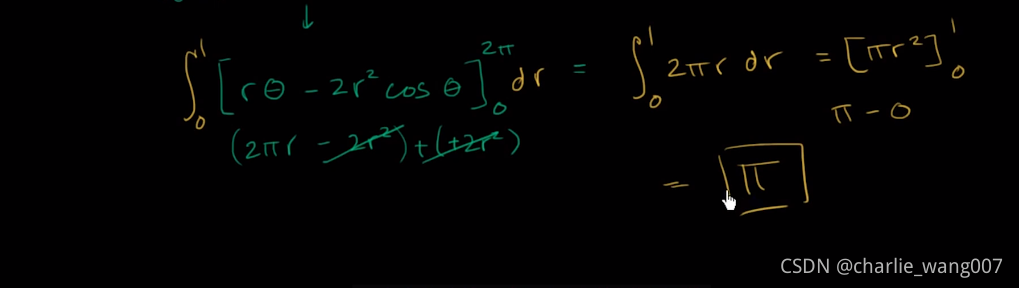 ∫₀¹ [rθ - 2r² cos θ]₀^2π dr = ∫₀¹ 2πr dr = [πr²]₀¹
(2πr - 2r²) + (+2r²)
π - 0
= π
CSDN @charlie_wang007